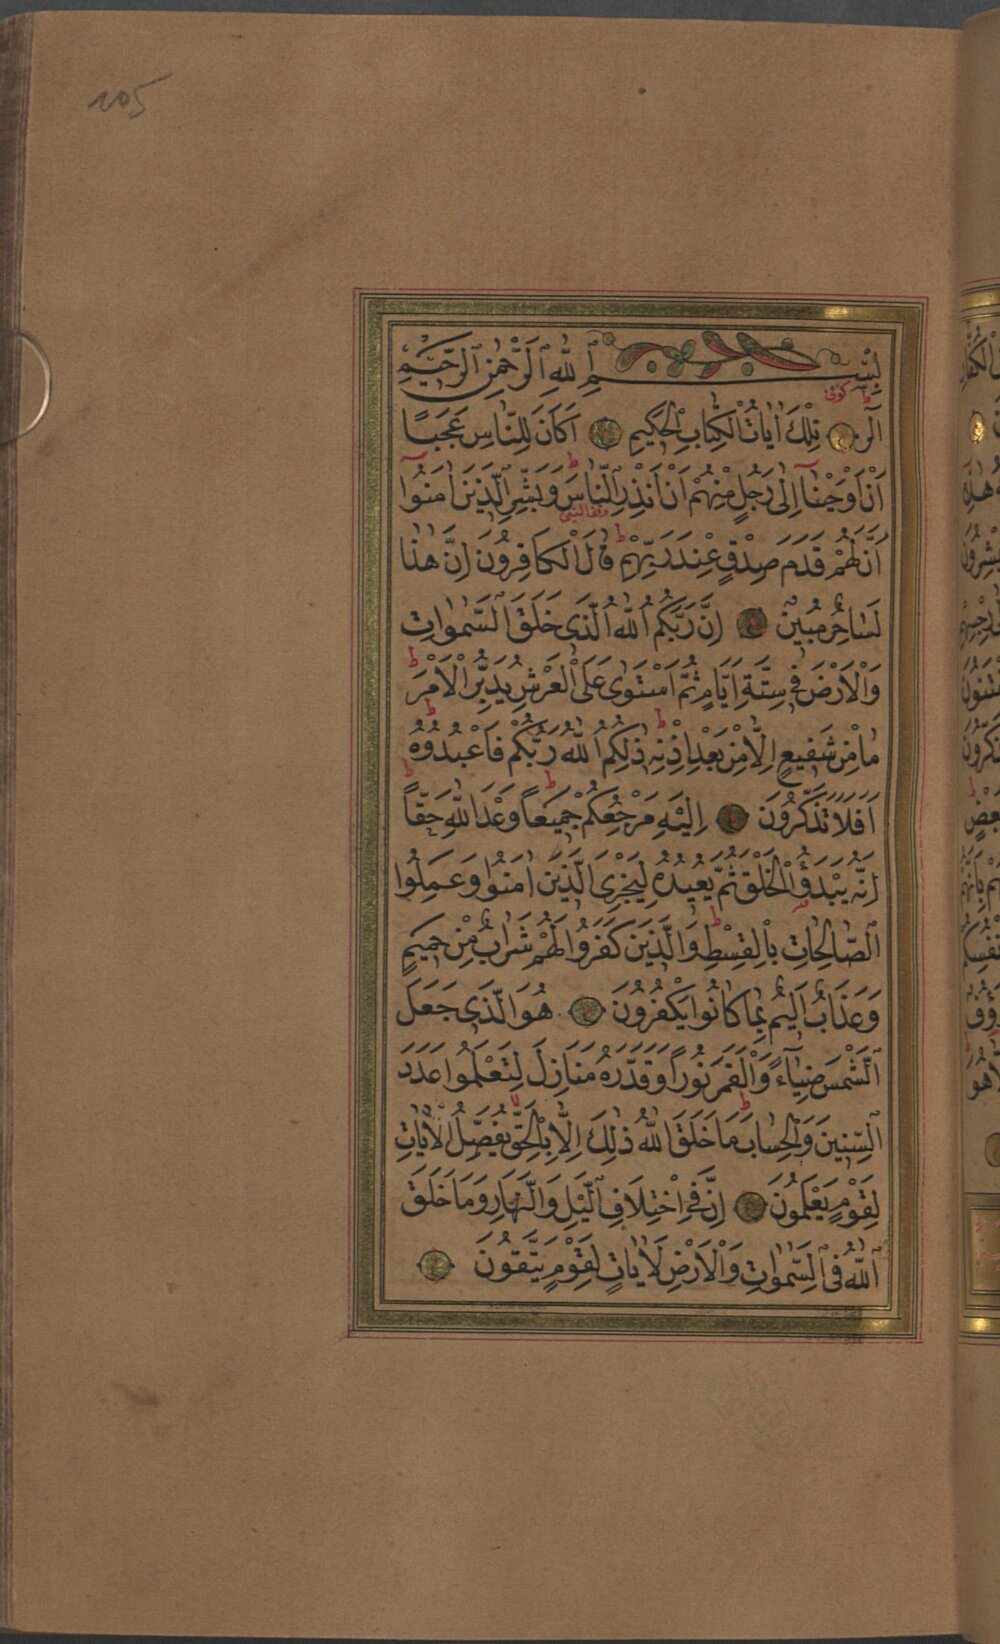 205
بِسْمِ ٱللّٰهِ ٱلرَّحْمٰنِ ٱلرَّحِيمِ
ط كوفى
الٓرٰ تِلْكَ اٰيَاتُ الْكِتَابِ الْحَكِيمِ اَكَانَ لِلنَّاسِ عَجَبًا
اَنْ اَوْحَيْنَٓا اِلٰى رَجُلٍ مِنْهُمْ اَنْ اَنْذِرِ النَّاسَ وَبَشِّرِ الَّذِينَ اٰمَنُٓوا
وقف النبى
اَنَّ لَهُمْ قَدَمَ صِدْقٍ عِنْدَ رَبِّهِمْ ط قَالَ الْكَافِرُونَ اِنَّ هٰذَا
لَسَاحِرٌ مُبِينٌ اِنَّ رَبَّكُمُ اللّٰهُ الَّذِى خَلَقَ السَّمٰوَاتِ
وَالْاَرْضَ فِى سِتَّةِ اَيَّامٍ ثُمَّ اسْتَوٰى عَلَى الْعَرْشِ يُدَبِّرُ الْاَمْرَ ط
مَا مِنْ شَفِيعٍ اِلَّا مِنْ بَعْدِ اِذْنِهِ ط ذٰلِكُمُ اللّٰهُ رَبُّكُمْ فَاعْبُدُوهُ ط
اَفَلَا تَذَكَّرُونَ اِلَيْهِ مَرْجِعُكُمْ جَمِيعًا ط وَعْدَ اللّٰهِ حَقًّا ط
اِنَّهُ يَبْدَؤُا الْخَلْقَ ثُمَّ يُعِيدُهُ لِيَجْزِىَ الَّذِينَ اٰمَنُوا وَعَمِلُوا
الصَّالِحَاتِ بِالْقِسْطِ ط وَالَّذِينَ كَفَرُوا لَهُمْ شَرَابٌ مِنْ حَمِيمٍ
وَعَذَابٌ اَلِيمٌ بِمَا كَانُوا يَكْفُرُونَ هُوَ الَّذِى جَعَلَ
الشَّمْسَ ضِيَٓاءً وَالْقَمَرَ نُورًا وَقَدَّرَهُ مَنَازِلَ لِتَعْلَمُوا عَدَدَ
السِّنِينَ وَالْحِسَابَ ط مَا خَلَقَ اللّٰهُ ذٰلِكَ اِلَّا بِالْحَقِّ يُفَصِّلُ الْاٰيَاتِ
لِقَوْمٍ يَعْلَمُونَ اِنَّ فِى اخْتِلَافِ الَّيْلِ وَالنَّهَارِ وَمَا خَلَقَ
اللّٰهُ فِى السَّمٰوَاتِ وَالْاَرْضِ لَاٰيَاتٍ لِقَوْمٍ يَتَّقُونَ